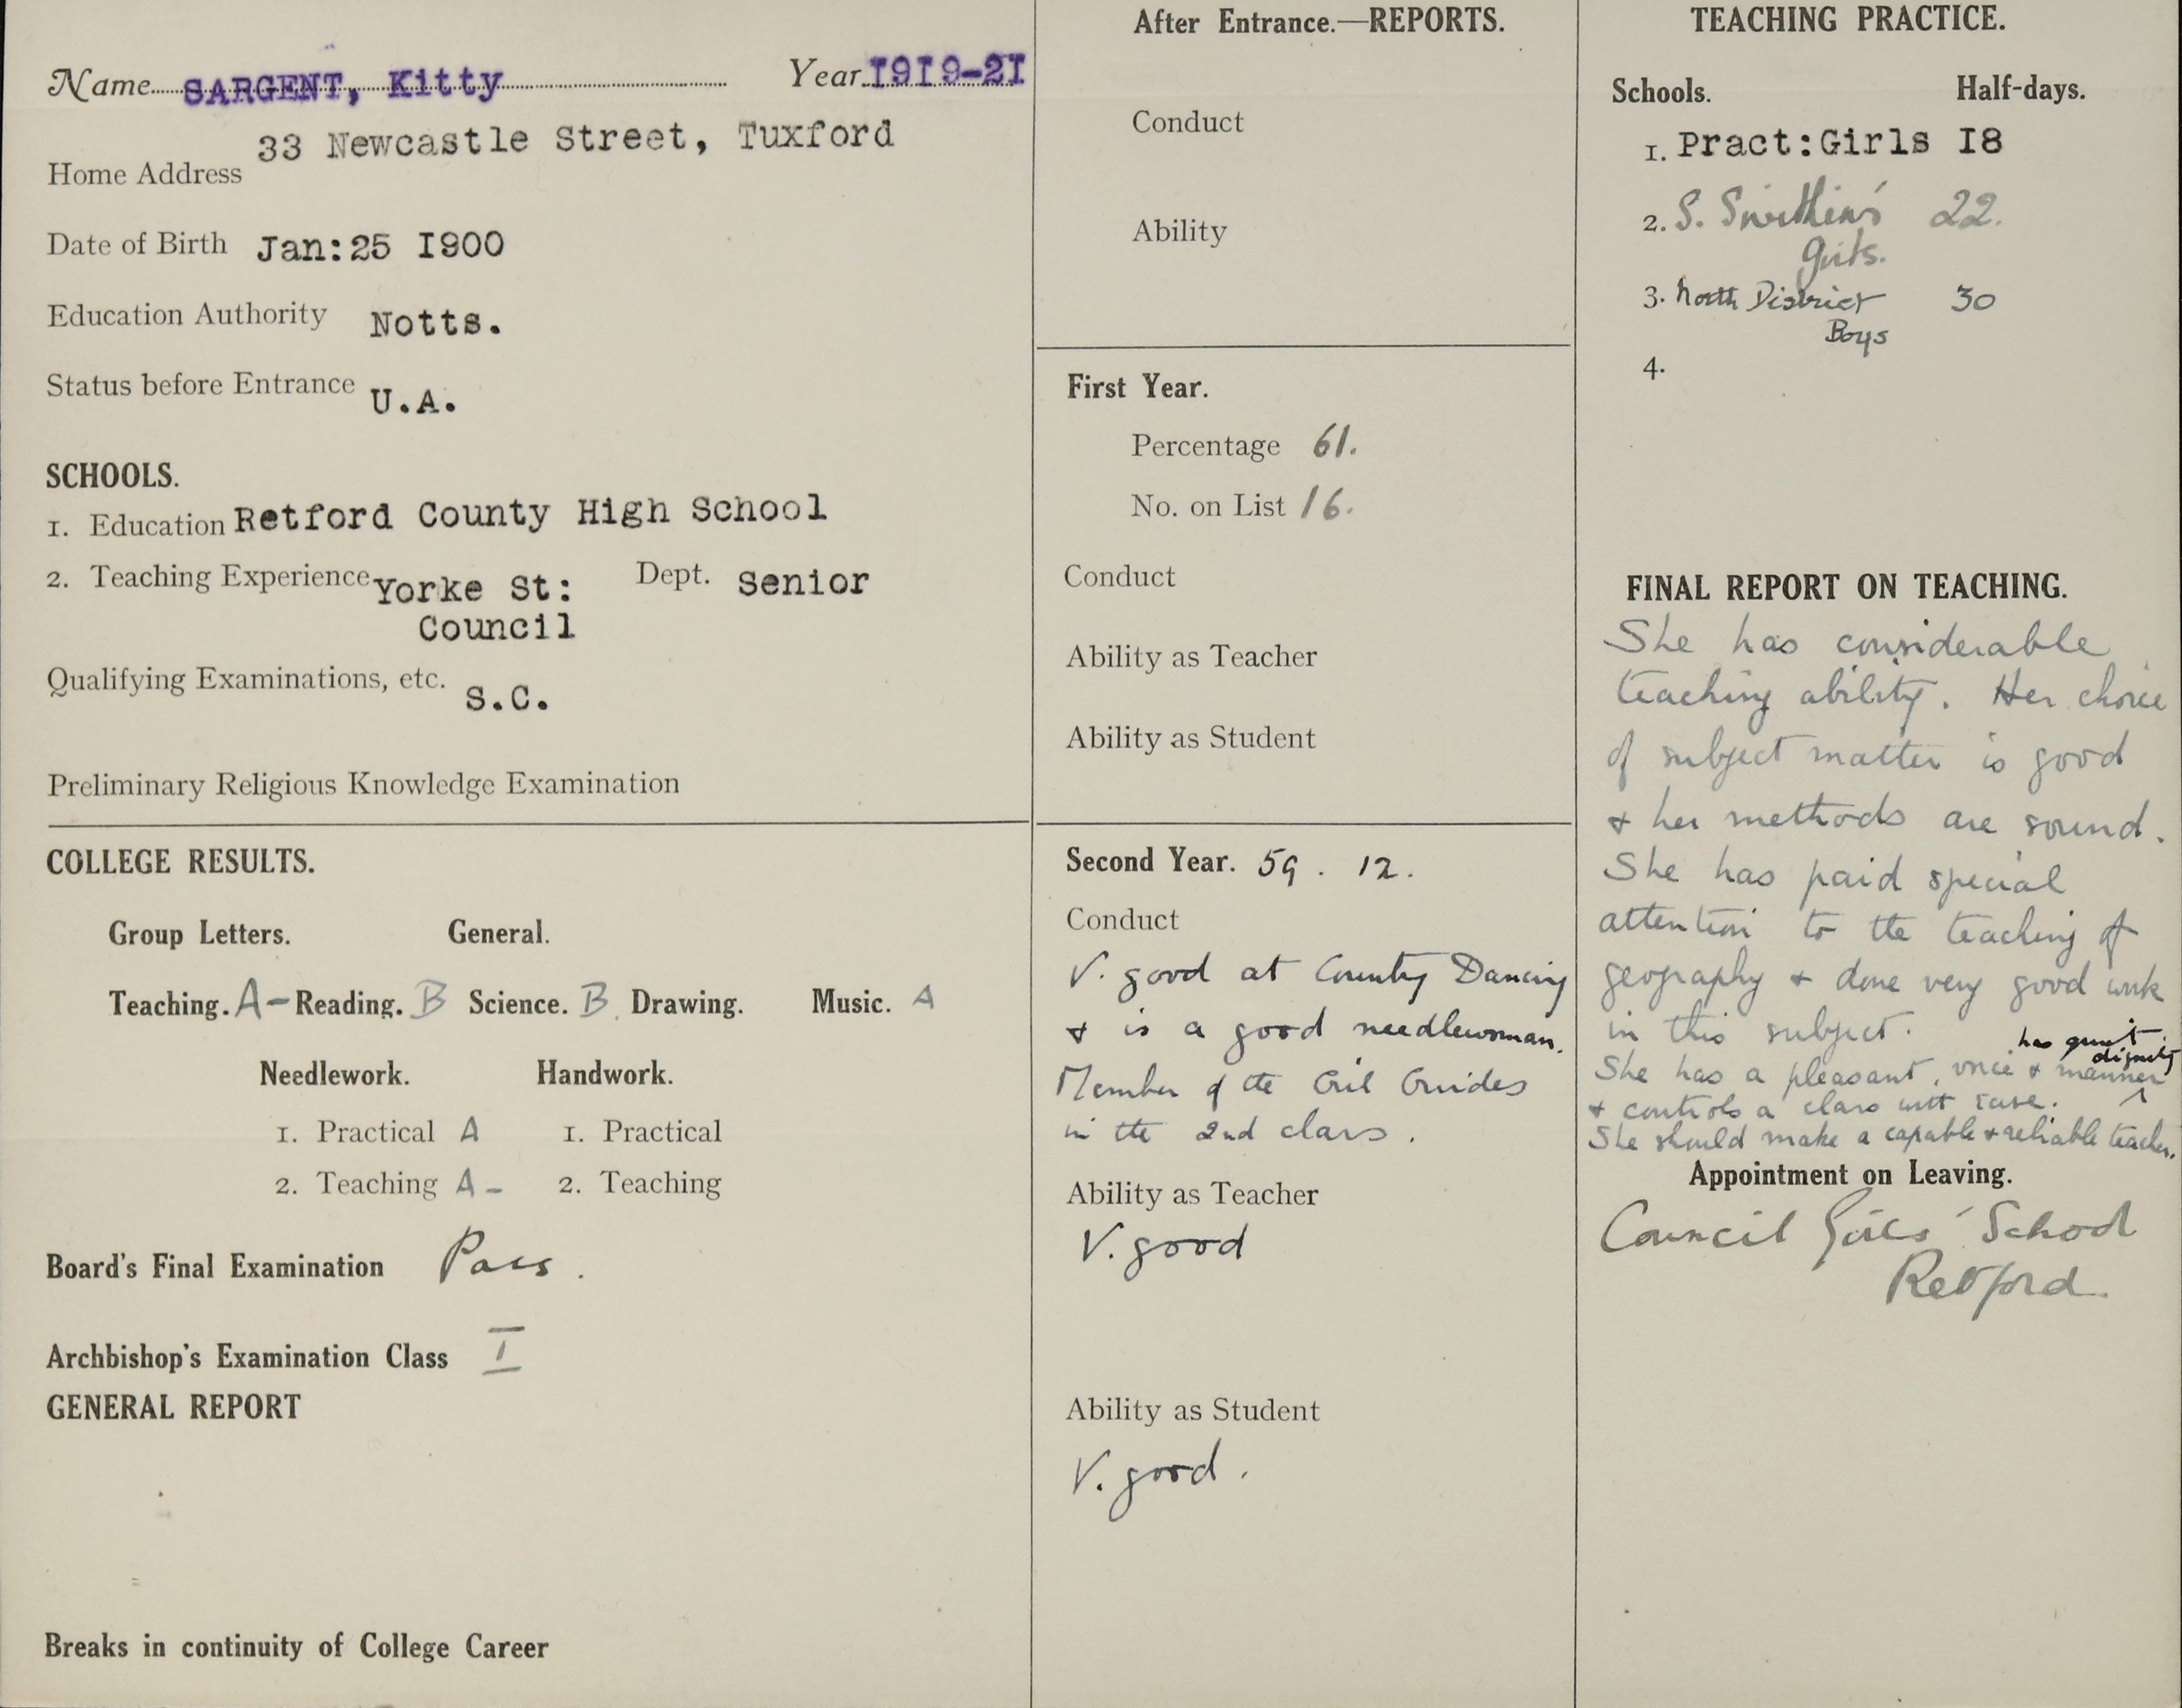 Name SARGENT, Kitty Year 1919-21
33 Newcastle Street, Tuxford
Home Address
Date of Birth Jan:25 1900
Education Authority Notts.
Status before Entrance U.A.
SCHOOLS.
1. Education Retford County High School
2. Teaching Experience Yorke St: Dept. Senior
Council
Qualifying Examinations, etc. S.C.
Preliminary Religious Knowledge Examination
COLLEGE RESULTS.
Group Letters. General.
Teaching. A- Reading. B Science. B. Drawing. Music. A
Needlework. Handwork.
1. Practical A 1. Practical
2. Teaching A- 2. Teaching
Board's Final Examination Pass.
Archbishop's Examination Class I
GENERAL REPORT
Breaks in continuity of College Career
After Entrance.—REPORTS.
Conduct
Ability
First Year.
Percentage 61.
No. on List 16.
Conduct
Ability as Teacher
Ability as Student
Second Year. 59. 12.
Conduct
V. good at Country Dancing
& is a good needlewoman.
Member of the Girl Guides
in the 2nd class.
Ability as Teacher
V. good
Ability as Student
V. good.
TEACHING PRACTICE.
Schools. Half-days.
1. Pract:Girls 18
2. S. Swithin's 22.
Girls.
3. North District 30
Boys
4.
FINAL REPORT ON TEACHING.
She has considerable
teaching ability. Her choice
of subject matter is good
& her methods are sound.
She has paid special
attention to the teaching of
geography & done very good work
in this subject.
has quiet dignity
She has a pleasant voice & manner
& controls a class with ease.
She should make a capable & reliable teacher.
Appointment on Leaving.
Council Girls' School
Retford.